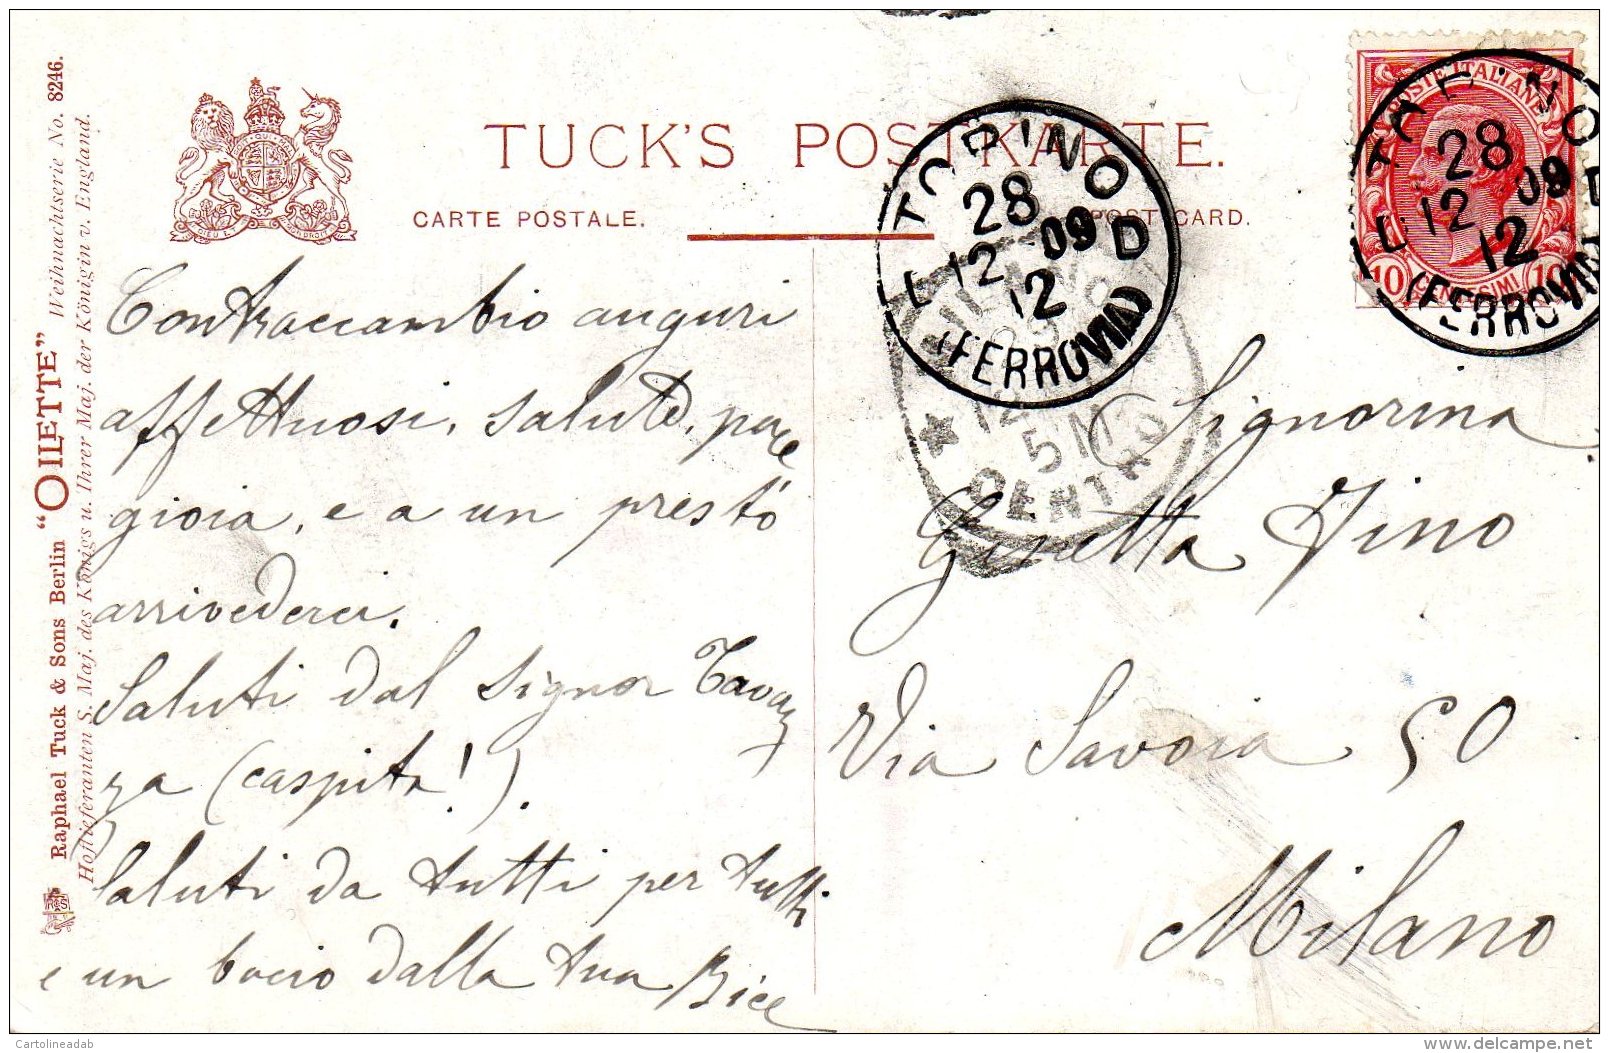 TUCK'S POSTKARTE.
CARTE POSTALE.
POST CARD.
Raphael Tuck & Sons Berlin "OILETTE" Weihnachtserie No. 8246.
Hoflieferanten S. Maj. des Königs u. Ihrer Maj. der Königin v. England.
POSTE ITALIANE
10 CENTESIMI 10
TORINO
28
12 09
12
(FERROVIA)
TORINO
28
12 09
12
(FERROVIA)
MILANO
12
5 M
CENTRO
Contraccambio auguri
affettuosi, salute, pace
gioia, e a un presto
arrivederci.
Saluti dal Signor Tavaz
za (caspita!).
Saluti da tutti per tutti
e un bacio dalla tua Bice
Signorina
Ginetta Vino
Via Savoia 50
Milano
© Cartolineadab
delcampe.net